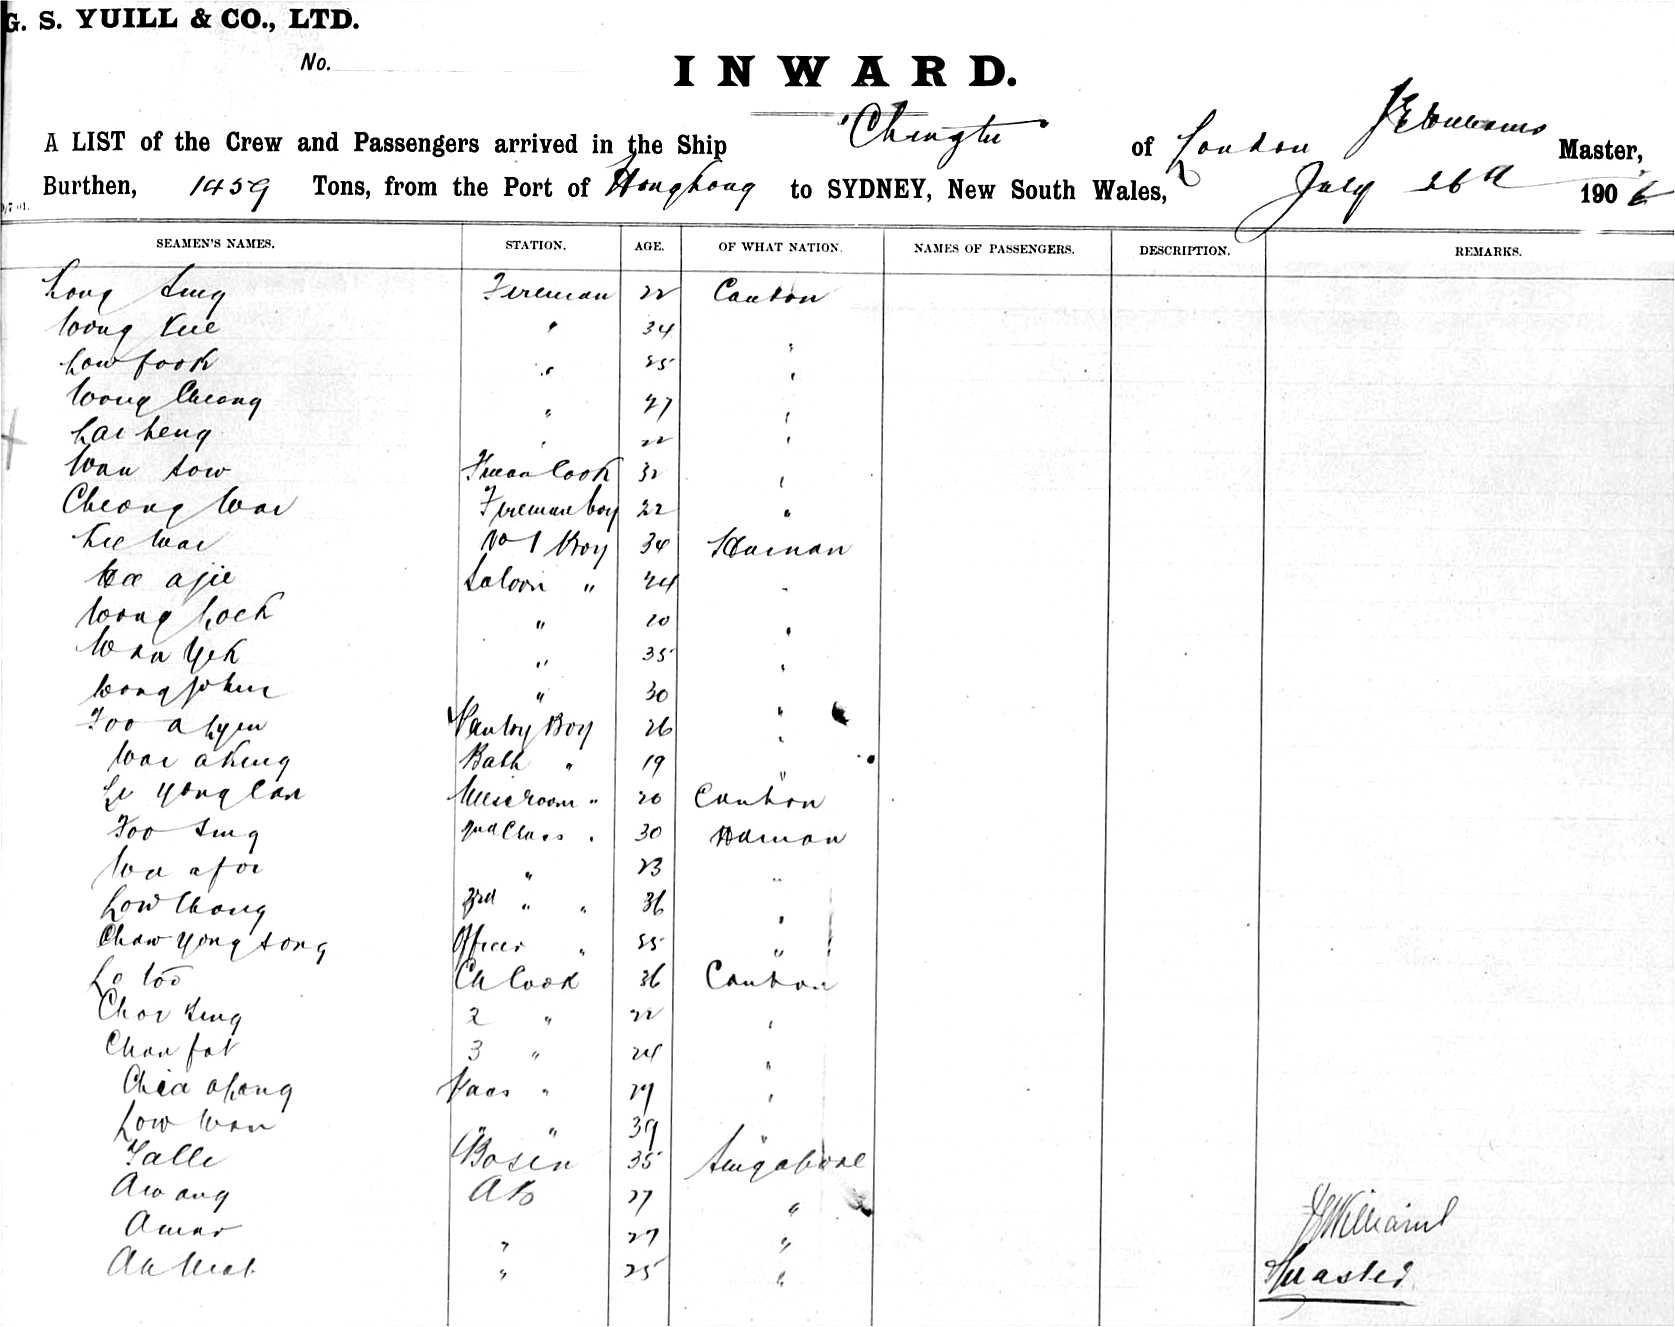 G. S. YUILL & CO., LTD.
No.
INWARD.
A LIST of the Crew and Passengers arrived in the Ship "Chingtu" of London J E Williams Master,
Burthen, 1459 Tons, from the Port of Hongkong to SYDNEY, New South Wales, July 26th 1906
SEAMEN'S NAMES. STATION. AGE. OF WHAT NATION. NAMES OF PASSENGERS. DESCRIPTION. REMARKS.
Long Sing Fireman 22 Canton
Wong Kue " 34 "
Low fook " 25 "
Wong Cheong " 27 "
Lai heng " 22 "
Wan Sow Fireman Cook 32 "
Cheong Wai Fireman boy 22 "
Lee Wai No 1 Boy 34 Hainan
ajie Saloon " 24 "
Wong hock " 20 "
Wan Yek " 35 "
Wong John " 30 "
Foo a Pantry Boy 26 "
Wai aking Bath " 19 "
Yong Can Messroom " 20 Canton
Foo Sing 2nd Class " 30 Hainan
afoi " 23 "
Low Chong 3rd " " 36 "
Chaw Yong Song Officer " 25 "
Lo Ch Cook 36 Canton
Choi Sing 2 " 22 "
Chan fat 3 " 24 "
Chia Pass " 29 "
Low Wan " " 39 "
Talli Bosin 35 Singapore
Awang AB 27 "
Amat " 27 "
Ahmat " 25 "
J E Williams
Master